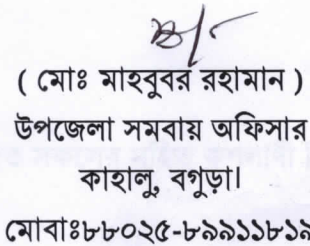 ( মোঃ মাহবুবর রহামান )
উপজেলা সমবায় অফিসার
কাহালু, বগুড়া।
মোবাঃ৮৮০২৫-৮৯৯১১৮১৯